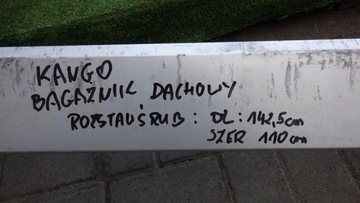 KANGO
BAGAŻNIK DACHOWY
ROZSTAW ŚRUB : DŁ : 142,5cm
SZER 110cm